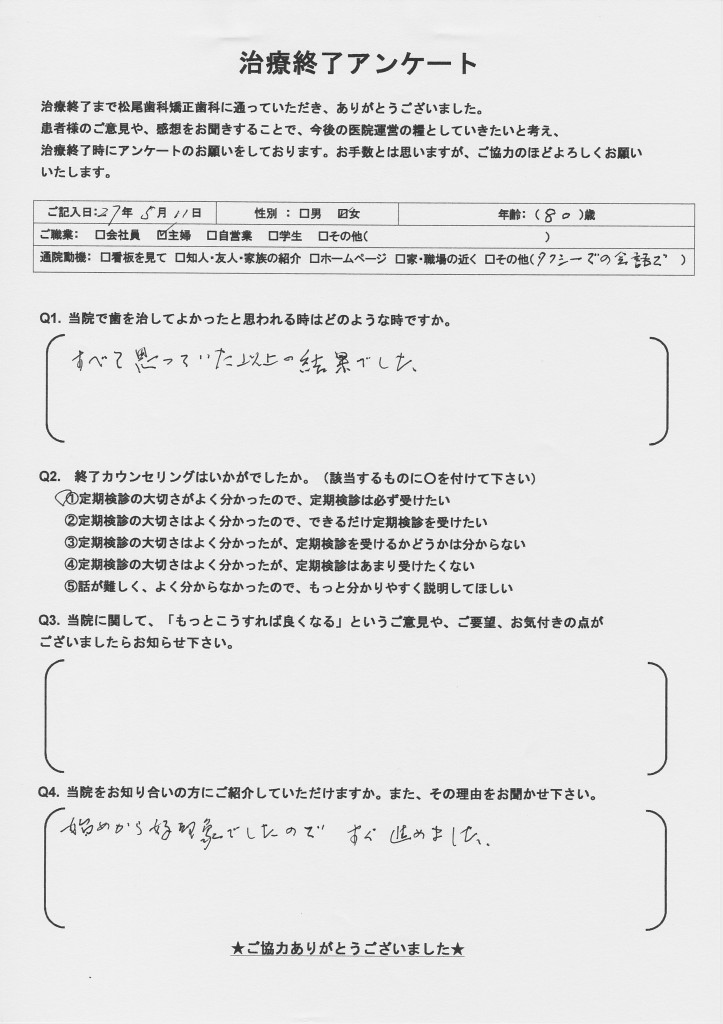 治療終了アンケート
治療終了まで松尾歯科矯正歯科に通っていただき、ありがとうございました。
患者様のご意見や、感想をお聞きすることで、今後の医院運営の糧としていきたいと考え、
治療終了時にアンケートのお願いをしております。お手数とは思いますが、ご協力のほどよろしくお願い
いたします。
ご記入日:27年 5月 11日 性別 : □男 ☑女 年齢:(80)歳
ご職業: □会社員 ☑主婦 □自営業 □学生 □その他( )
通院動機: □看板を見て □知人・友人・家族の紹介 □ホームページ □家・職場の近く □その他(タクシーでの会話で )
Q1. 当院で歯を治してよかったと思われる時はどのような時ですか。
すべて思っていた以上の結果でした、
Q2. 終了カウンセリングはいかがでしたか。(該当するものに〇を付けて下さい)
①定期検診の大切さがよく分かったので、定期検診は必ず受けたい
②定期検診の大切さはよく分かったので、できるだけ定期検診を受けたい
③定期検診の大切さはよく分かったが、定期検診を受けるかどうかは分からない
④定期検診の大切さはよく分かったが、定期検診はあまり受けたくない
⑤話が難しく、よく分からなかったので、もっと分かりやすく説明してほしい
Q3. 当院に関して、「もっとこうすれば良くなる」というご意見や、ご要望、お気付きの点が
ございましたらお知らせ下さい。
Q4. 当院をお知り合いの方にご紹介していただけますか。また、その理由をお聞かせ下さい。
始めから好印象でしたので すぐ進めました、
★ご協力ありがとうございました★